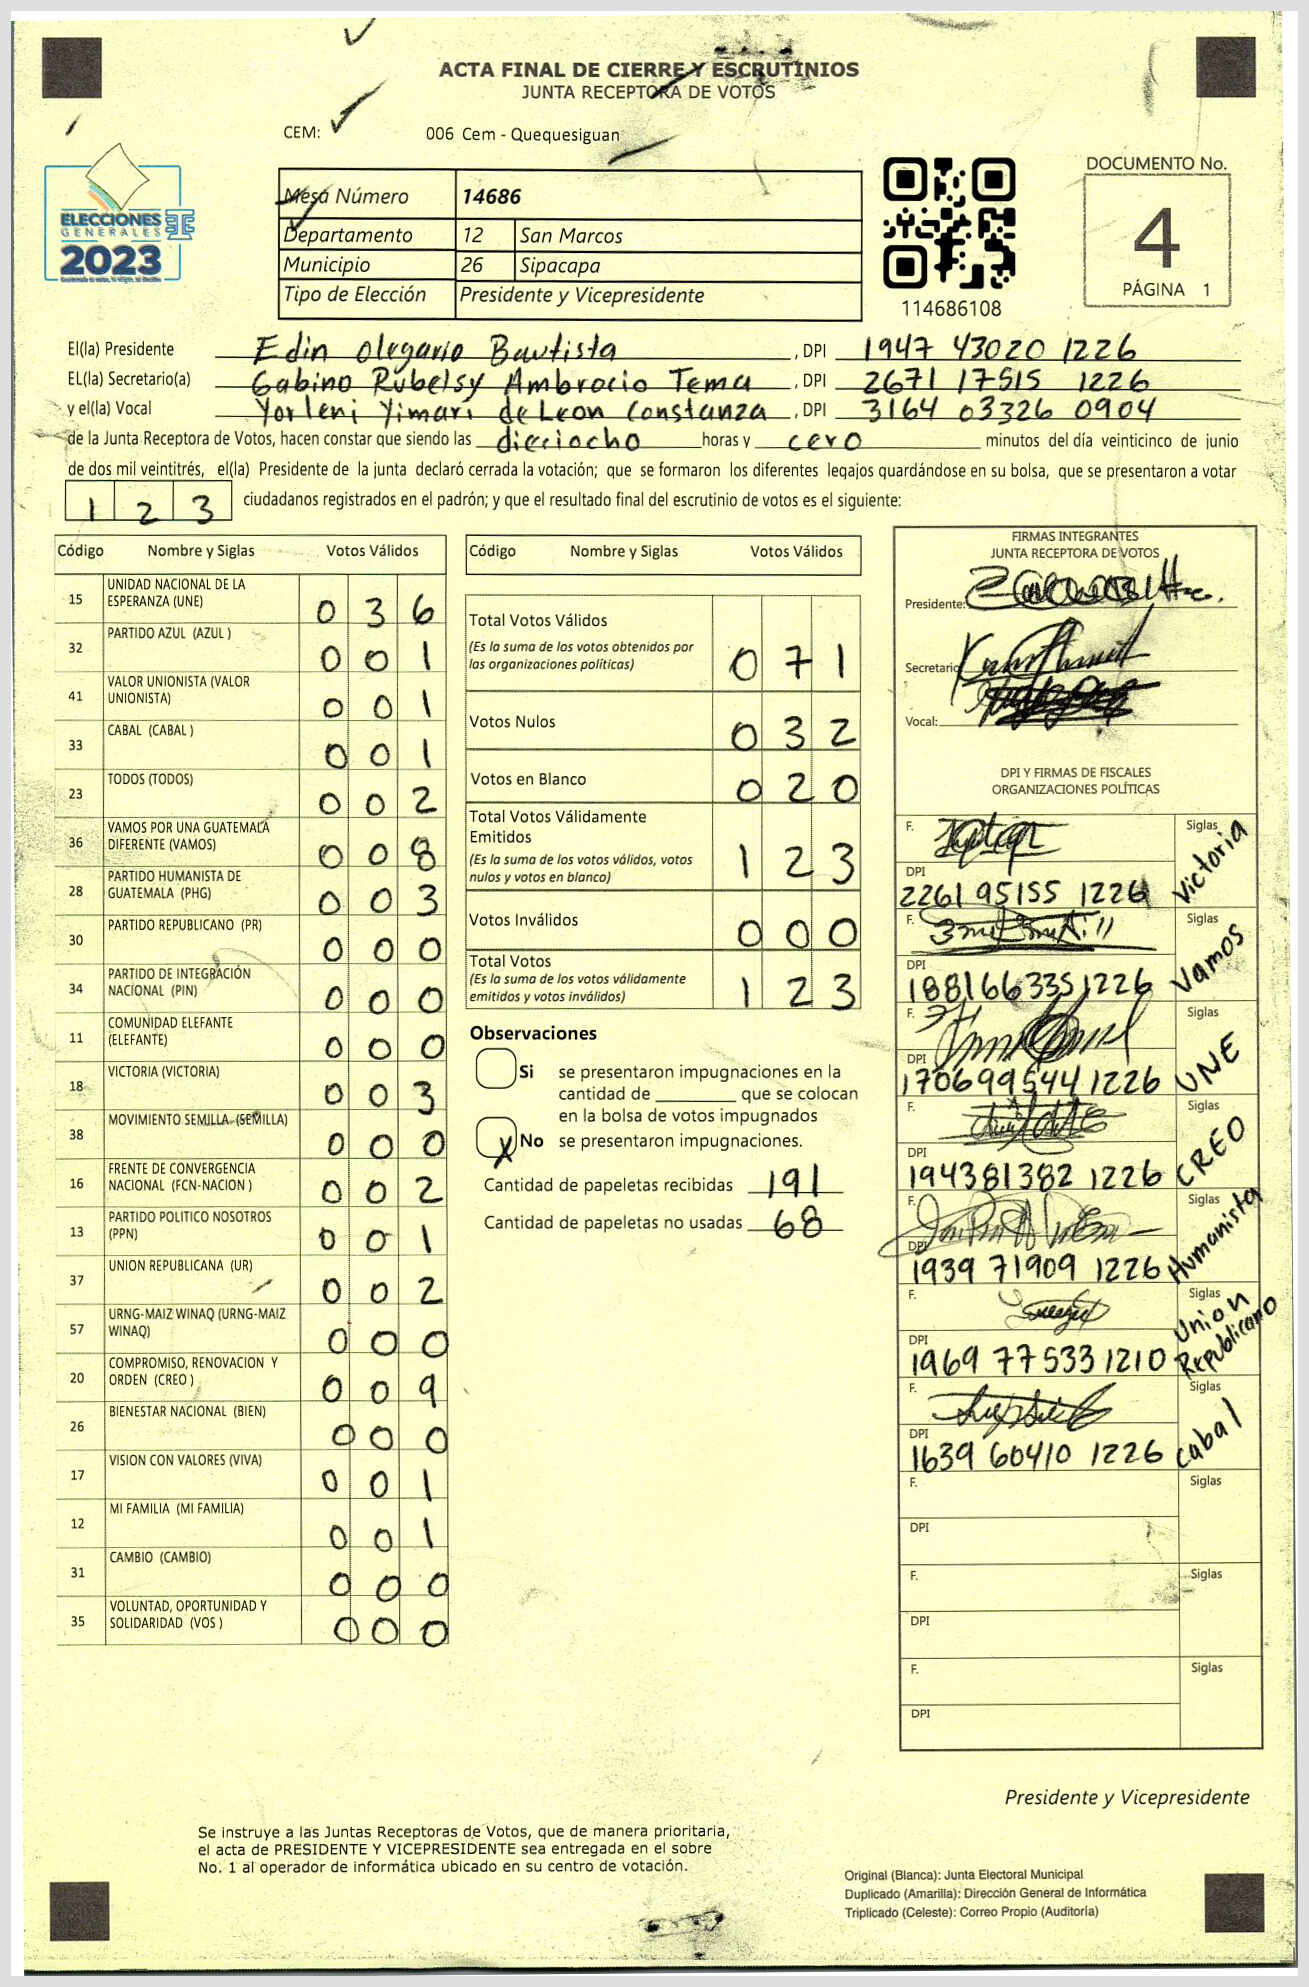 ACTA FINAL DE CIERRE Y ESCRUTINIOS
JUNTA RECEPTORA DE VOTOS
CEM: 006 Cem - Quequesiguan
ELECCIONES
GENERALES
2023
Mesa Número 14686
Departamento 12 San Marcos
Municipio 26 Sipacapa
Tipo de Elección Presidente y Vicepresidente
114686108
DOCUMENTO No.
4
PÁGINA 1
El(la) Presidente Edin Olegario Bautista , DPI 1947 43020 1226
EL(la) Secretario(a) Gabino Rubelsy Ambrocio Tema , DPI 2671 17515 1226
y el(la) Vocal Yorleni Yimari de Leon Constanza , DPI 3164 03326 0904
de la Junta Receptora de Votos, hacen constar que siendo las dieciocho horas y cero minutos del día veinticinco de junio
de dos mil veintitrés, el(la) Presidente de la junta declaró cerrada la votación; que se formaron los diferentes legajos quardándose en su bolsa, que se presentaron a votar
1 2 3 ciudadanos registrados en el padrón; y que el resultado final del escrutinio de votos es el siguiente:
Código Nombre y Siglas Votos Válidos
15 UNIDAD NACIONAL DE LA
ESPERANZA (UNE) 0 3 6
32 PARTIDO AZUL (AZUL ) 0 0 1
41 VALOR UNIONISTA (VALOR
UNIONISTA) 0 0 1
33 CABAL (CABAL ) 0 0 1
23 TODOS (TODOS) 0 0 2
36 VAMOS POR UNA GUATEMALA
DIFERENTE (VAMOS) 0 0 8
28 PARTIDO HUMANISTA DE
GUATEMALA (PHG) 0 0 3
30 PARTIDO REPUBLICANO (PR) 0 0 0
34 PARTIDO DE INTEGRACIÓN
NACIONAL (PIN) 0 0 0
11 COMUNIDAD ELEFANTE
(ELEFANTE) 0 0 0
18 VICTORIA (VICTORIA) 0 0 3
38 MOVIMIENTO SEMILLA (SEMILLA) 0 0 0
16 FRENTE DE CONVERGENCIA
NACIONAL (FCN-NACION ) 0 0 2
13 PARTIDO POLITICO NOSOTROS
(PPN) 0 0 1
37 UNION REPUBLICANA (UR) 0 0 2
57 URNG-MAIZ WINAQ (URNG-MAIZ
WINAQ) 0 0 0
20 COMPROMISO, RENOVACION Y
ORDEN (CREO ) 0 0 9
26 BIENESTAR NACIONAL (BIEN) 0 0 0
17 VISION CON VALORES (VIVA) 0 0 1
12 MI FAMILIA (MI FAMILIA) 0 0 1
31 CAMBIO (CAMBIO) 0 0 0
35 VOLUNTAD, OPORTUNIDAD Y
SOLIDARIDAD (VOS ) 0 0 0
Código Nombre y Siglas Votos Válidos
Total Votos Válidos
(Es la suma de los votos obtenidos por
las organizaciones políticas) 0 7 1
Votos Nulos 0 3 2
Votos en Blanco 0 2 0
Total Votos Válidamente
Emitidos
(Es la suma de los votos válidos, votos
nulos y votos en blanco) 1 2 3
Votos Inválidos 0 0 0
Total Votos
(Es la suma de los votos válidamente
emitidos y votos inválidos) 1 2 3
Observaciones
Si se presentaron impugnaciones en la
cantidad de ________ que se colocan
en la bolsa de votos impugnados
X No se presentaron impugnaciones.
Cantidad de papeletas recibidas 191
Cantidad de papeletas no usadas 68
FIRMAS INTEGRANTES
JUNTA RECEPTORA DE VOTOS
Presidente:
Secretario
Vocal:
DPI Y FIRMAS DE FISCALES
ORGANIZACIONES POLÍTICAS
F. Siglas Victoria
DPI
2261 95155 1226
F. Siglas Vamos
DPI
188166335 1226
F. Siglas UNE
DPI
170699544 1226
F. Siglas CREO
DPI
194381382 1226
F. Siglas Humanista
DPI
1939 71909 1226
F. Siglas Union Republicano
DPI
1969 77533 1210
F. Siglas Cabal
DPI
1639 60410 1226
F. Siglas
DPI
F. Siglas
DPI
F. Siglas
DPI
Presidente y Vicepresidente
Se instruye a las Juntas Receptoras de Votos, que de manera prioritaria,
el acta de PRESIDENTE Y VICEPRESIDENTE sea entregada en el sobre
No. 1 al operador de informática ubicado en su centro de votación.
Original (Blanca): Junta Electoral Municipal
Duplicado (Amarilla): Dirección General de Informática
Triplicado (Celeste): Correo Propio (Auditoría)